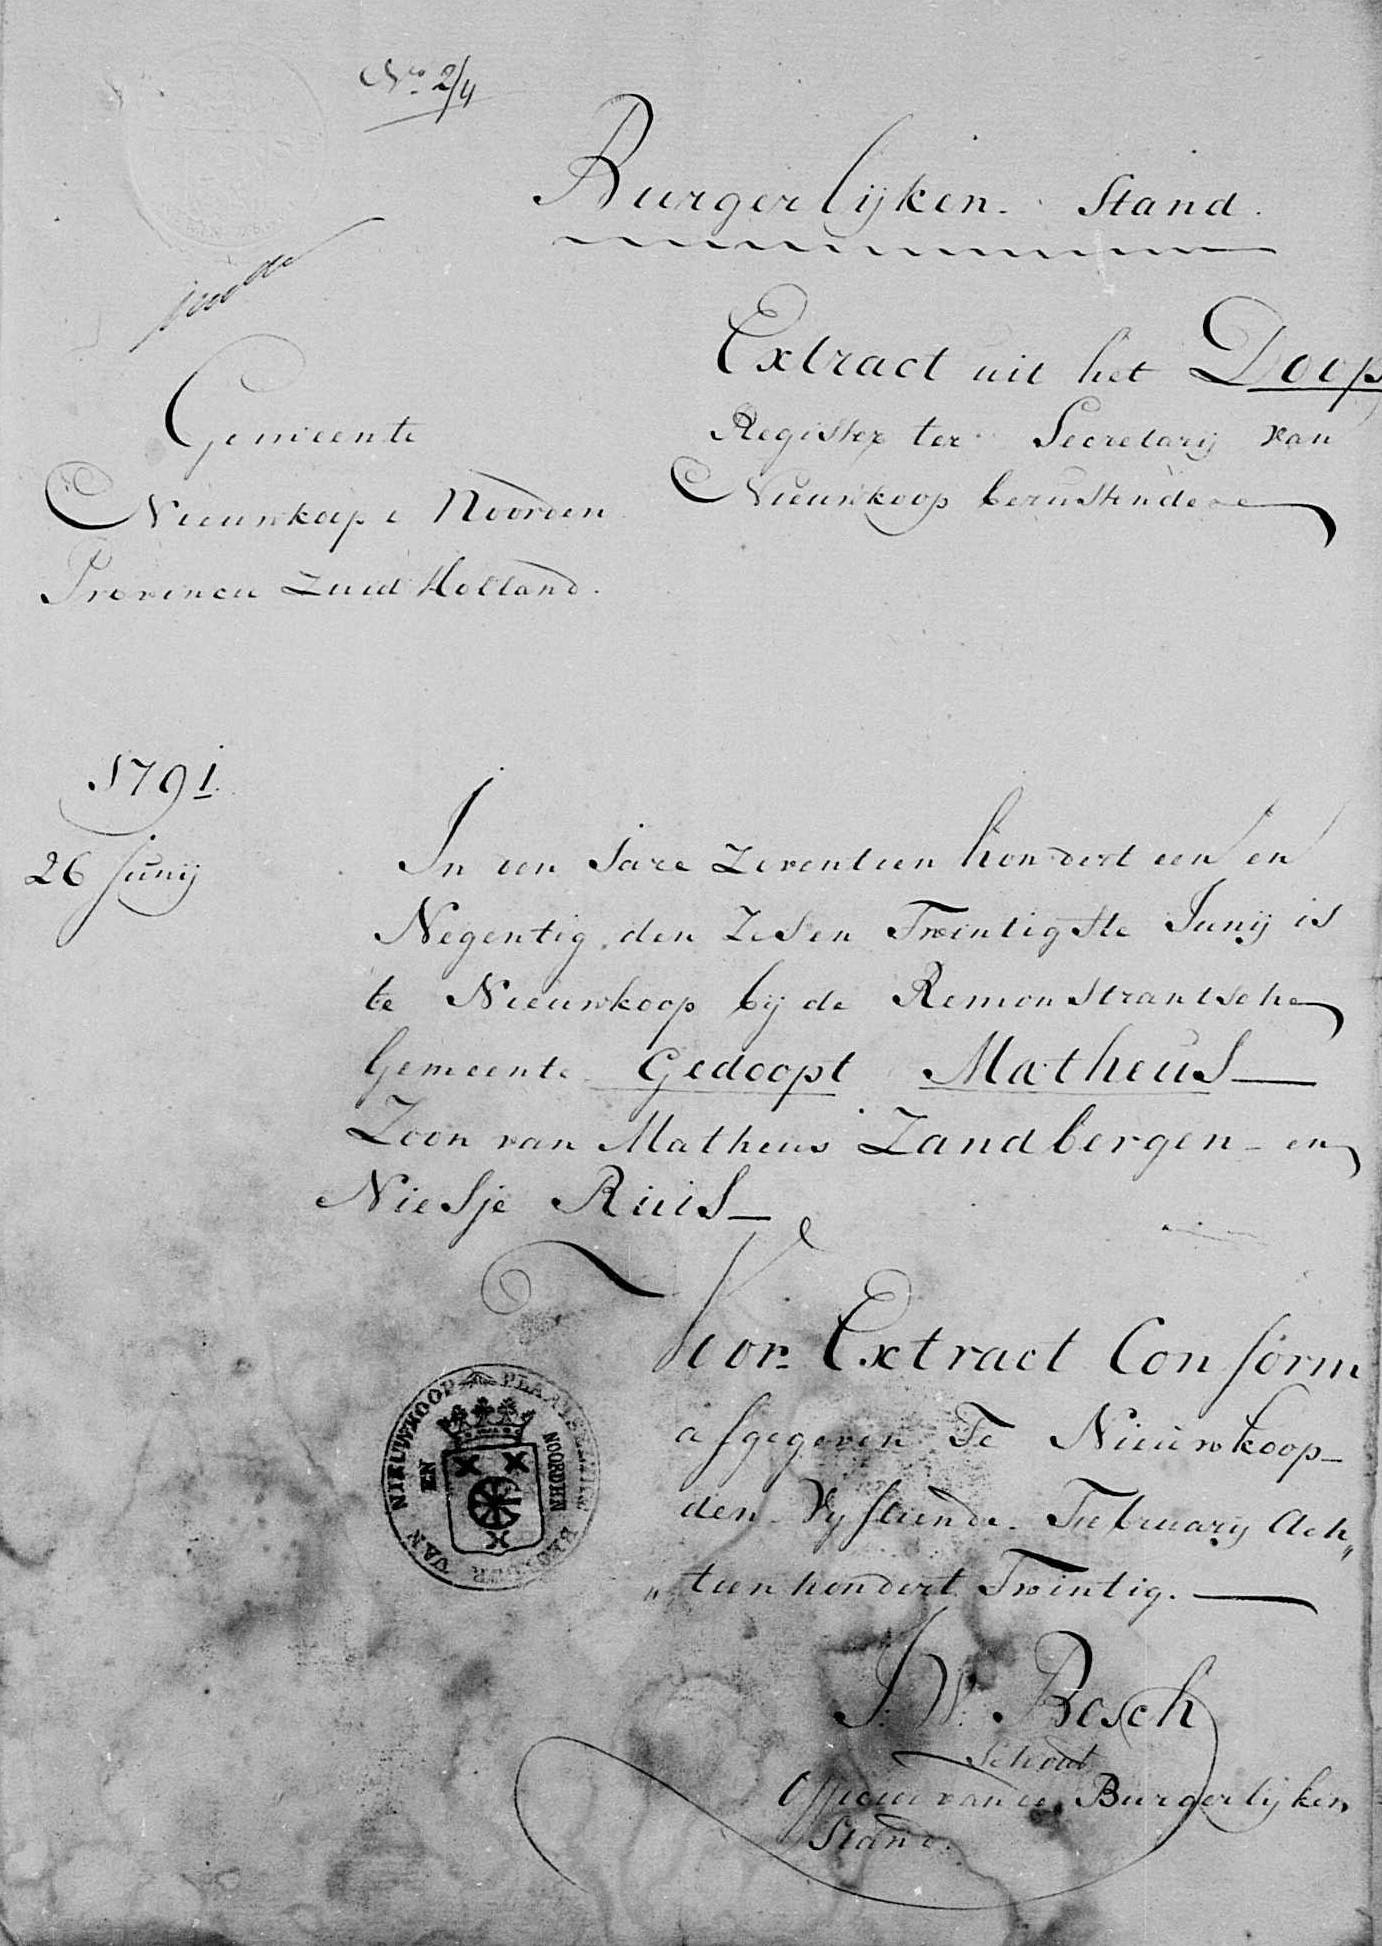 No. 2/4
Burgerlijken Stand.
Extract uit het Doop
Register ter Secretarij van
Nieuwkoop berustende
Gemeente
Nieuwkoop e Noorden
Provincie Zuid Holland.
1791.
26 Junij
In den Jare Zeventien hondert een en
Negentig, den Zes en Twintigste Junij is
te Nieuwkoop bij de Remonstrantsche
Gemeente Gedoopt Matheus
Zoon van Matheus Zandbergen en
Niesje Ruis
Voor Extract Conform
afgegeven Te Nieuwkoop
den Vyftiende February Ach„
„tien hondert Twintig.
J: W: Bosch
Schout
Officier van de Burgerlijken
Stand.
PLAATSELYK BESTUUR VAN NIEUWKOOP
EN
NOORDEN